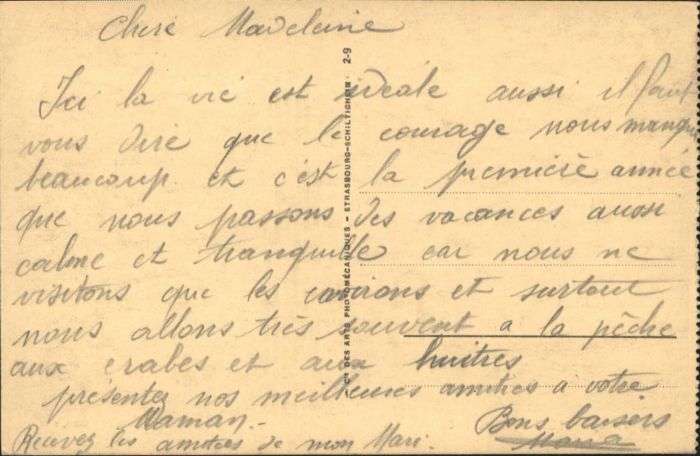 Chere Madeleine
Ici la vie est idéale aussi il faut
vous dire que le courage nous manque
beaucoup et c'est la premiere année
que nous passons des vacances aussi
calme et tranquille car nous ne
visitons que les environs et surtout
nous allons très souvent a la pêche
aux crabes et aux huitres
présentez nos meilleures amitiés a votre
Maman.
Bons baisers
Recevez les amitiés de mon Mari.
Cie DES ARTS PHOTOMÉCANIQUES - STRASBOURG-SCHILTIGHEIM 2-9